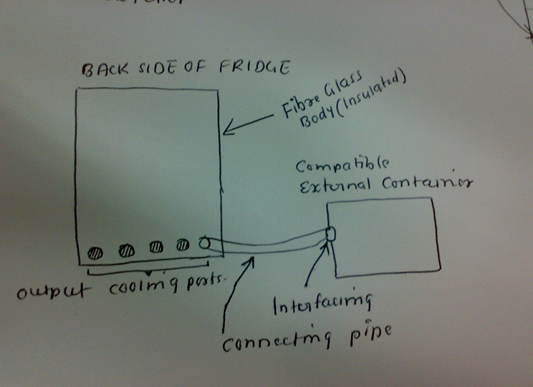 BACK SIDE OF FRIDGE
Fibre Glass
Body (Insulated)
Compatible
External Container
output cooling ports.
Interfacing
connecting pipe